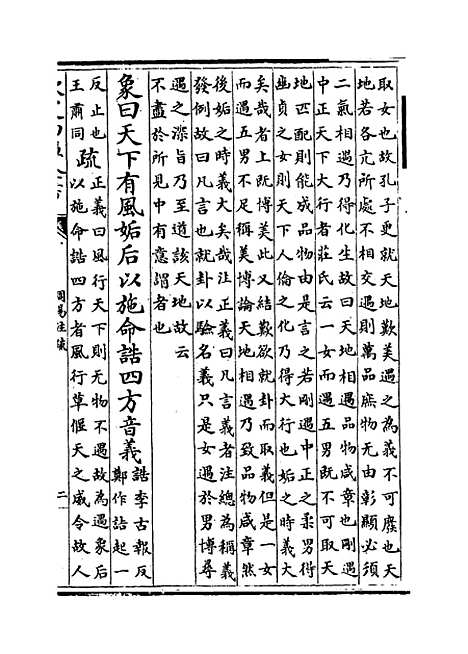 取女也故孔子更就天地歎美遇之為義不可廢也天
地若各亢所處不相交遇則萬品庶物无由彰顯必須
二氣相遇乃得化生故曰天地相遇品物咸章也剛遇
中正天下大行者莊氏云一女而遇五男既不可取天
地匹配則能成品物由是言之若剛遇中正之柔男得
幽貞之女則天下人倫之化乃得大行也姤之時義大
矣哉者上既博美此又結歎欲就卦而取義但是一女
而遇五男不足稱美博論天地相遇乃致品物咸章然
後姤之時義大矣哉注正義曰凡言義者注總為稱義
發例故曰凡言也就卦以驗名義只是女遇於男博尋
遇之深旨乃至道該天地故云
不盡於所見中有意謂者也
象曰天下有風姤后以施命誥四方音義誥李古報反
鄭作詰起一
反止也
王肅同疏正義曰風行天下則无物不遇故為遇象后
以施命誥四方者風行草偃天之威令故人
周易注疏
二